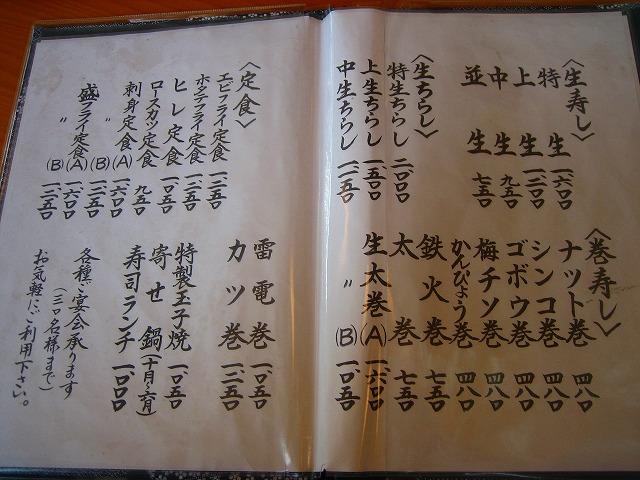 〈生寿し〉
特 生 一、六〇〇
上 生 一、二〇〇
中 生 九五〇
並 生 七五〇
〈生ちらし〉
特生ちらし 二、〇〇〇
上生ちらし 一、五〇〇
中生ちらし 一、一五〇
〈巻寿し〉
ナット巻 四八〇
シンコ巻 四八〇
ゴボウ巻 四八〇
梅チソ巻 四八〇
かんぴょう巻 四八〇
鉄火巻 七五〇
太巻 七五〇
生太巻(A) 一、六〇〇
〃 (B) 一、〇五〇
〈定食〉
エビフライ定食 一、二五〇
ホタテフライ定食 一、二五〇
ヒレ定食 一、〇五〇
ロースカツ定食 九五〇
刺身定食(A) 一、六〇〇
〃 (B) 一、二五〇
盛フライ定食(A) 一、六〇〇
〃 (B) 一、二五〇
雷電巻 一、〇五〇
カツ巻 一、二五〇
特製玉子焼 一、〇五〇
寄せ鍋(十月〜六月)
寿司ランチ 一、〇〇〇
各種ご宴会承ります
(三〇名様まで)
お気軽にご利用下さい。